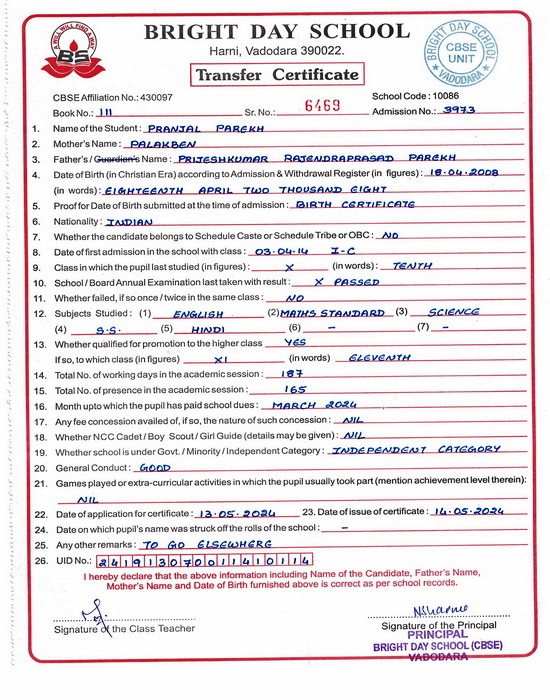 A WILL WILL FIND A WAY
BS
BRIGHT DAY SCHOOL
Harni, Vadodara 390022.
Transfer Certificate
BRIGHT DAY SCHOOL
CBSE
UNIT
VADODARA
CBSE Affiliation No.: 430097 School Code : 10086
Book No.: III Sr. No.: 6469 Admission No.: 3973
1. Name of the Student : PRANJAL PAREKH
2. Mother's Name : PALAKBEN
3. Father's / Guardian's Name : PRIJESHKUMAR RAJENDRAPRASAD PAREKH
4. Date of Birth (in Christian Era) according to Admission & Withdrawal Register (in figures) : 18.04.2008
(in words) : EIGHTEENTH APRIL TWO THOUSAND EIGHT
5. Proof for Date of Birth submitted at the time of admission : BIRTH CERTIFICATE
6. Nationality : INDIAN
7. Whether the candidate belongs to Schedule Caste or Schedule Tribe or OBC : NO
8. Date of first admission in the school with class : 03.04.14 I-C
9. Class in which the pupil last studied (in figures) : X (in words) : TENTH
10. School / Board Annual Examination last taken with result : X PASSED
11. Whether failed, if so once / twice in the same class : NO
12. Subjects Studied : (1) ENGLISH (2) MATHS STANDARD (3) SCIENCE
(4) S.S. (5) HINDI (6) - (7) -
13. Whether qualified for promotion to the higher class YES
If so, to which class (in figures) XI (in words) ELEVENTH
14. Total No. of working days in the academic session : 187
15. Total No. of presence in the academic session : 165
16. Month upto which the pupil has paid school dues : MARCH 2024
17. Any fee concession availed of, if so, the nature of such concession : NIL
18. Whether NCC Cadet / Boy Scout / Girl Guide (details may be given) : NIL
19. Whether school is under Govt. / Minority / Independent Category : INDEPENDENT CATEGORY
20. General Conduct : GOOD
21. Games played or extra-curricular activities in which the pupil usually took part (mention achievement level therein):
NIL
22. Date of application for certificate : 13.05.2024 23. Date of issue of certificate : 14.05.2024
24. Date on which pupil's name was struck off the rolls of the school : -
25. Any other remarks : TO GO ELSEWHERE
26. UID No.: 241913070011410114
I hereby declare that the above information including Name of the Candidate, Father's Name,
Mother's Name and Date of Birth furnished above is correct as per school records.
NSharma
Signature of the Class Teacher Signature of the Principal
PRINCIPAL
BRIGHT DAY SCHOOL (CBSE)
VADODARA